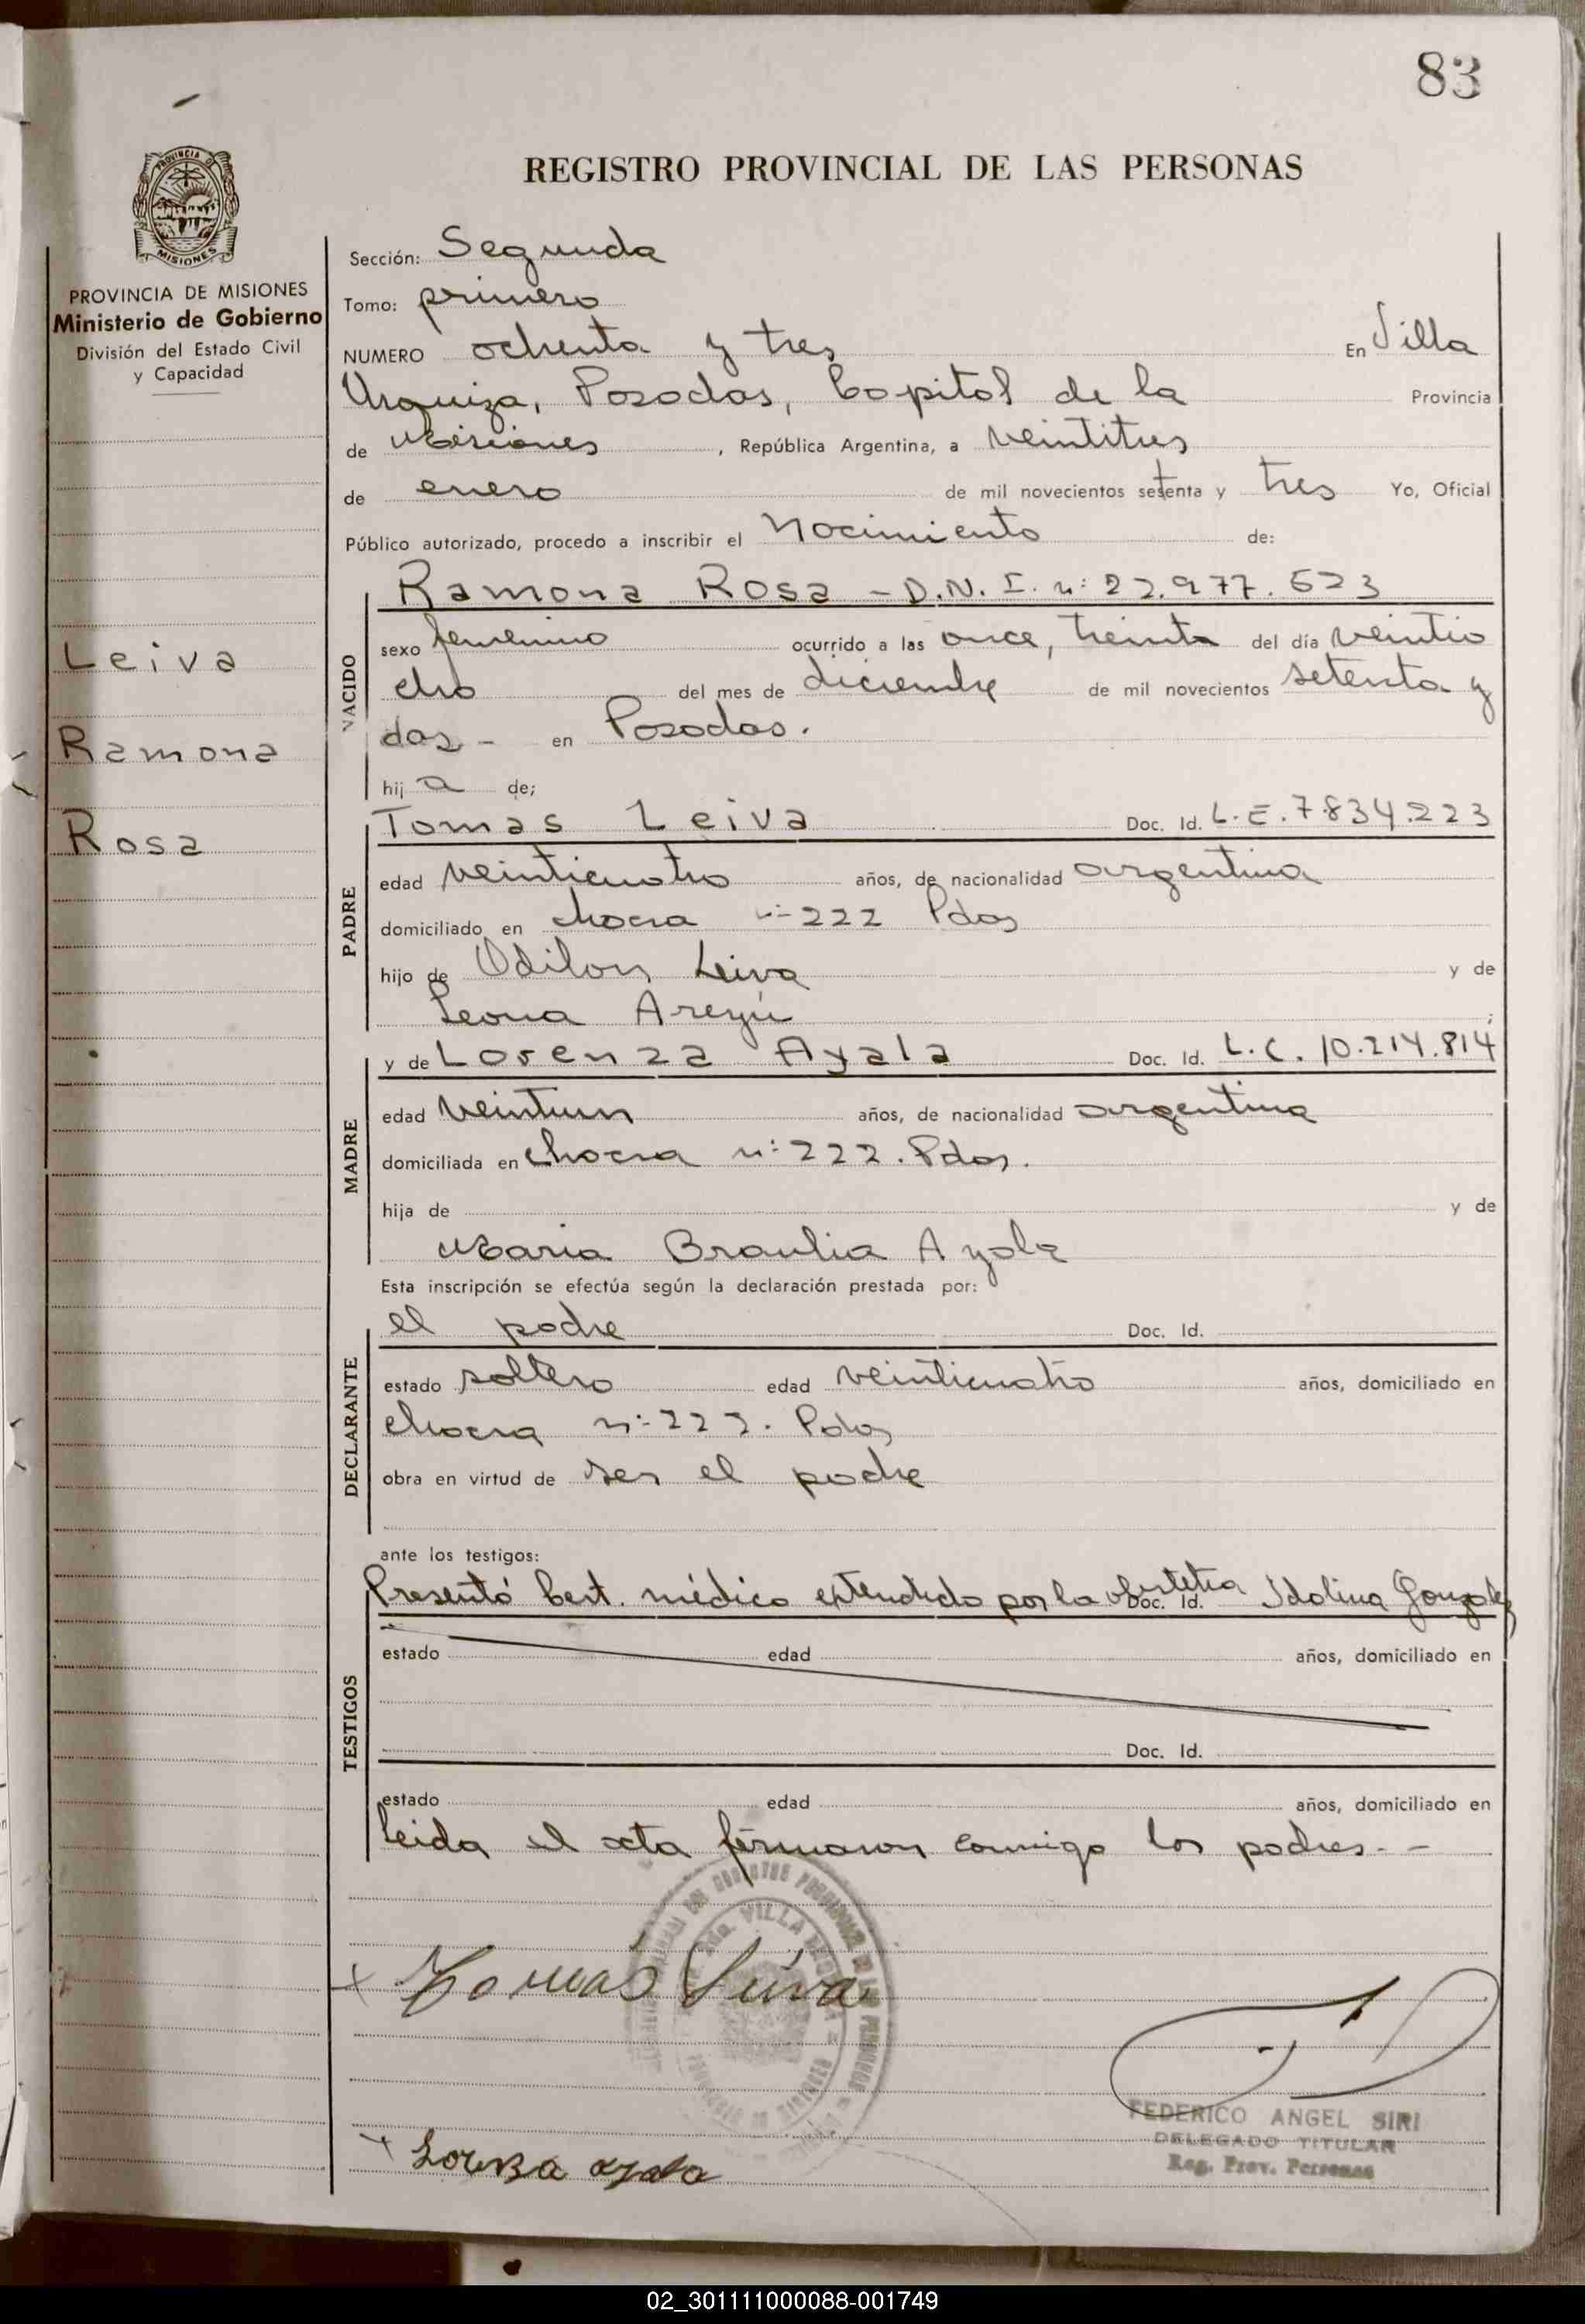 83
REGISTRO PROVINCIAL DE LAS PERSONAS
PROVINCIA DE
MISIONES
PROVINCIA DE MISIONES
Ministerio de Gobierno
División del Estado Civil
y Capacidad
Leiva
Ramona
Rosa
Sección: Segunda
Tomo: primero
NUMERO ochenta y tres En Villa
Urquiza, Posadas, Capital de la Provincia
de Misiones, República Argentina, a veintitres
de enero de mil novecientos setenta y tres Yo, Oficial
Público autorizado, procedo a inscribir el Nacimiento de:
NACIDO
Ramona Rosa - D.N.I. n: 22.977.623
sexo femenino ocurrido a las once, treinta del día veintio
cho del mes de diciembre de mil novecientos setenta y
dos - en Posadas.
hij a de;
PADRE
Tomas Leiva Doc. Id. L.E. 7.834.223
edad veinticuatro años, de nacionalidad argentina
domiciliado en chacra n: 222 Pdas
hijo de Odilon Leiva y de
Leona Areyú ;
MADRE
y de Lorenza Ayala Doc. Id. L.C. 10.214.814
edad veintiun años, de nacionalidad argentina
domiciliada en chacra n: 222. Pdas.
hija de y de
Maria Braulia Ayala
Esta inscripción se efectúa según la declaración prestada por:
DECLARANTE
el padre Doc. Id.
estado soltero edad veinticuatro años, domiciliado en
chacra n: 222. Pdas
obra en virtud de ser el padre
ante los testigos:
TESTIGOS
Presentó Cert. médico extendido por la obstetra Doc. Id. Idolina Gonzalez
estado edad años, domiciliado en
Doc. Id.
estado edad años, domiciliado en
leida el acta firmaron conmigo los padres. -
x Tomás Leiva
x Lorenza ayala
FEDERICO ANGEL SIRI
DELEGADO TITULAR
Reg. Prov. Personas
02_301111000088-001749